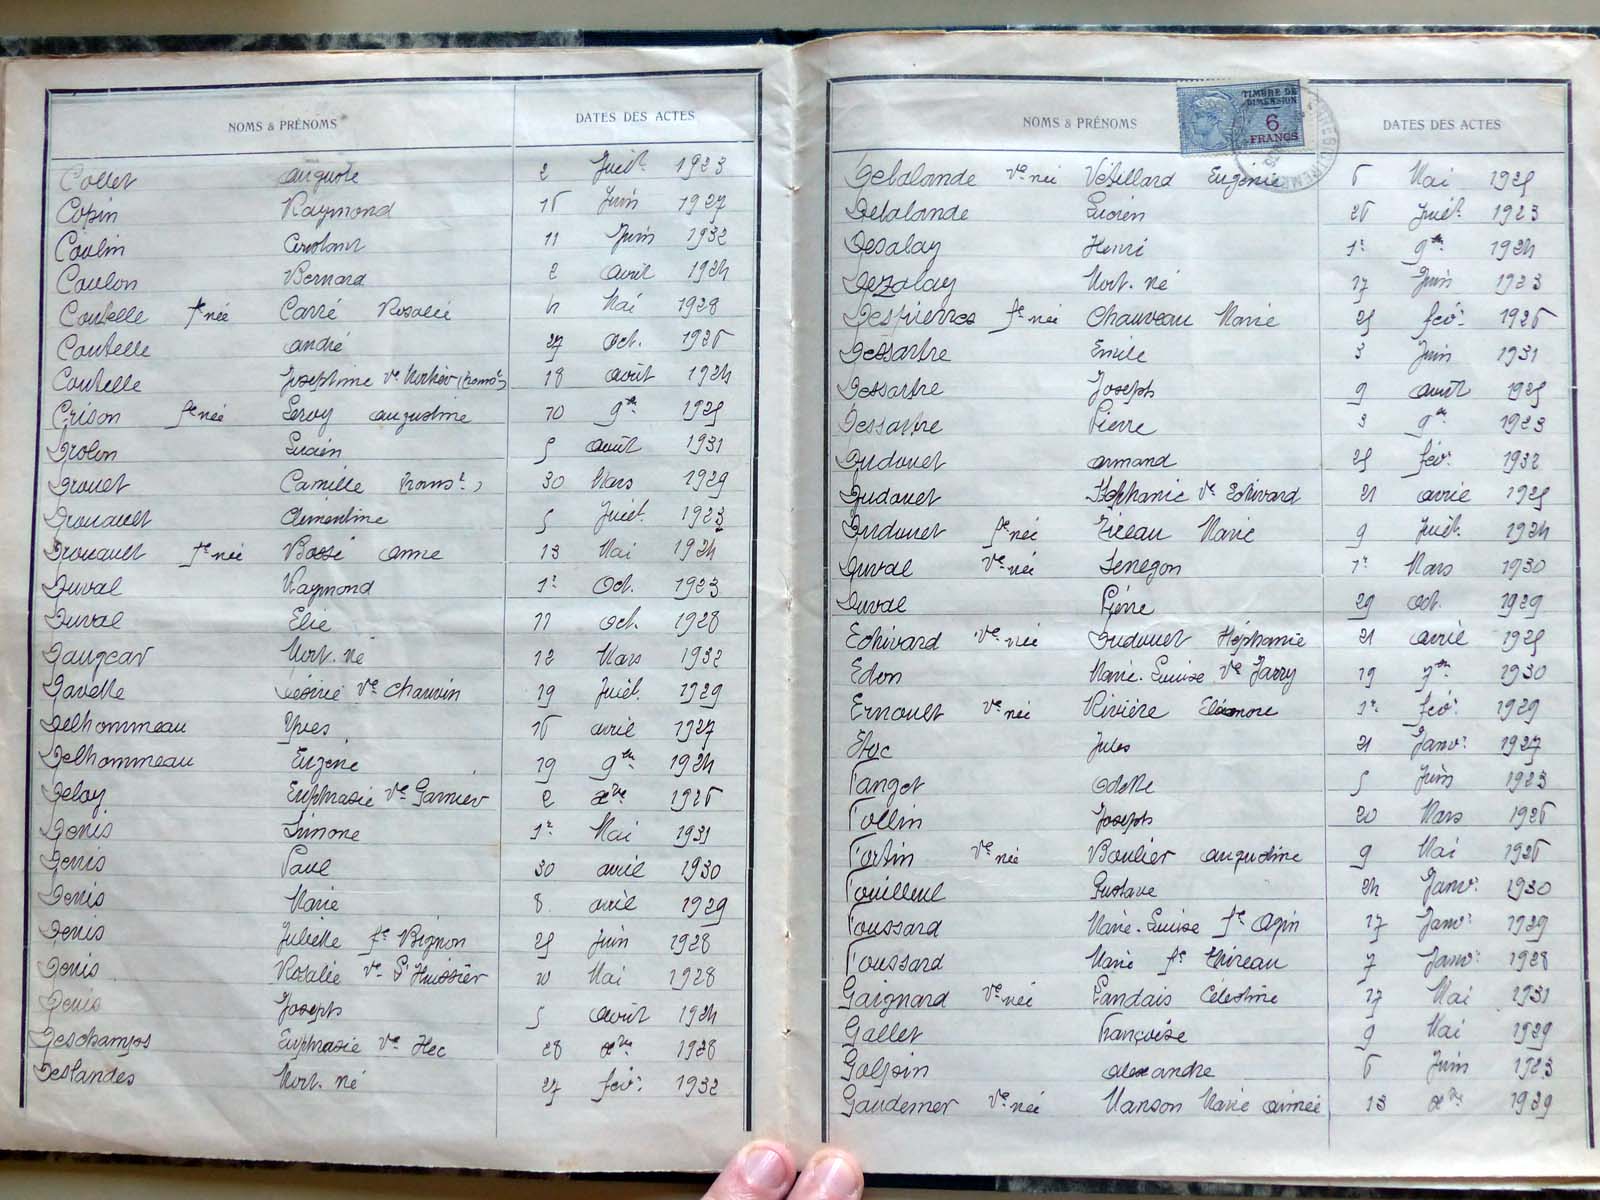 NOMS & PRÉNOMS DATES DES ACTES
Collet Auguste 2 Juil. 1923
Copin Raymond 16 Juin 1927
Coulin Constant 11 Juin 1932
Coulon Bernard 2 avril 1924
Coutelle fe née Carré Rosalie 4 Mai 1928
Coutelle André 27 oct. 1926
Coutelle Josephine Ve (transt) 18 août 1924
Crison fe née Leroy Augustine 10 9bre 1925
Drolon Lucien 5 août 1931
Drouet Camille (transt) 30 Mars 1929
Drouault Clémentine 5 Juil. 1923
Drouault fe née Bossé Anne 13 Mai 1924
Duval Raymond 1er Oct. 1923
Duval Elie 11 Oct. 1928
Daugear Mort-né 12 Mars 1932
Davelle Désirée Ve Chauvin 19 Juil. 1929
Delhommeau Yves 16 avril 1927
Delhommeau Eugène 19 9bre 1924
Delay Euphrasie Ve Garnier 2 Xbre 1926
Denis Simone 1er Mai 1931
Denis Paul 30 avril 1930
Denis Marie 8 avril 1929
Denis Juliette fe Bignon 25 Juin 1928
Denis Rosalie Ve L'Huissier 10 Mai 1928
Denis Joseph 5 août 1924
Deschamps Euphrasie Ve Hec 28 Xbre 1928
Deslandes Mort-né 27 fév. 1932
NOMS & PRÉNOMS DATES DES ACTES
TIMBRE DE DIMENSION 6 FRANCS
Delalande Ve née Vétillard Eugénie 6 Mai 1925
Delalande Lucien 26 Juil. 1923
Desalay Henri 1er 9bre 1924
Dezalay Mort-né 17 Juin 1923
Despierres fe née Chauveau Marie 25 fév. 1926
Dessartre Emile 3 Juin 1931
Dessartre Joseph 9 août 1925
Dessartre Pierre 3 9bre 1923
Dudouet Armand 25 fév. 1932
Dudouet Stéphanie Ve Echivard 21 avril 1925
Dudouet fe née Marie 9 Juil. 1924
Duval Ve née 1er Mars 1930
Duval Pierre 29 Oct. 1929
Echivard Ve née Dudouet Stéphanie 21 avril 1925
Edon Marie-Louise Ve Jarry 19 7bre 1930
Ernoult Ve née Rivière Eléonore 1er fév. 1929
Jules 21 Janv. 1927
Fangot Odette 5 Juin 1923
Follin Joseph 20 Mars 1926
Fortin Ve née Boulier Augustine 9 Mai 1926
Fouilleul Gustave 24 Janv. 1930
Foussard Marie-Louise fe 17 Janv. 1929
Foussard Marie fe Thireau 7 Janv. 1928
Gaignard Ve née Landais Célestine 17 Mai 1931
Gallet Françoise 9 Mai 1929
Galpin Alexandre 6 Juin 1923
Gaudemer Ve née Manson Marie Aimée 13 Xbre 1929